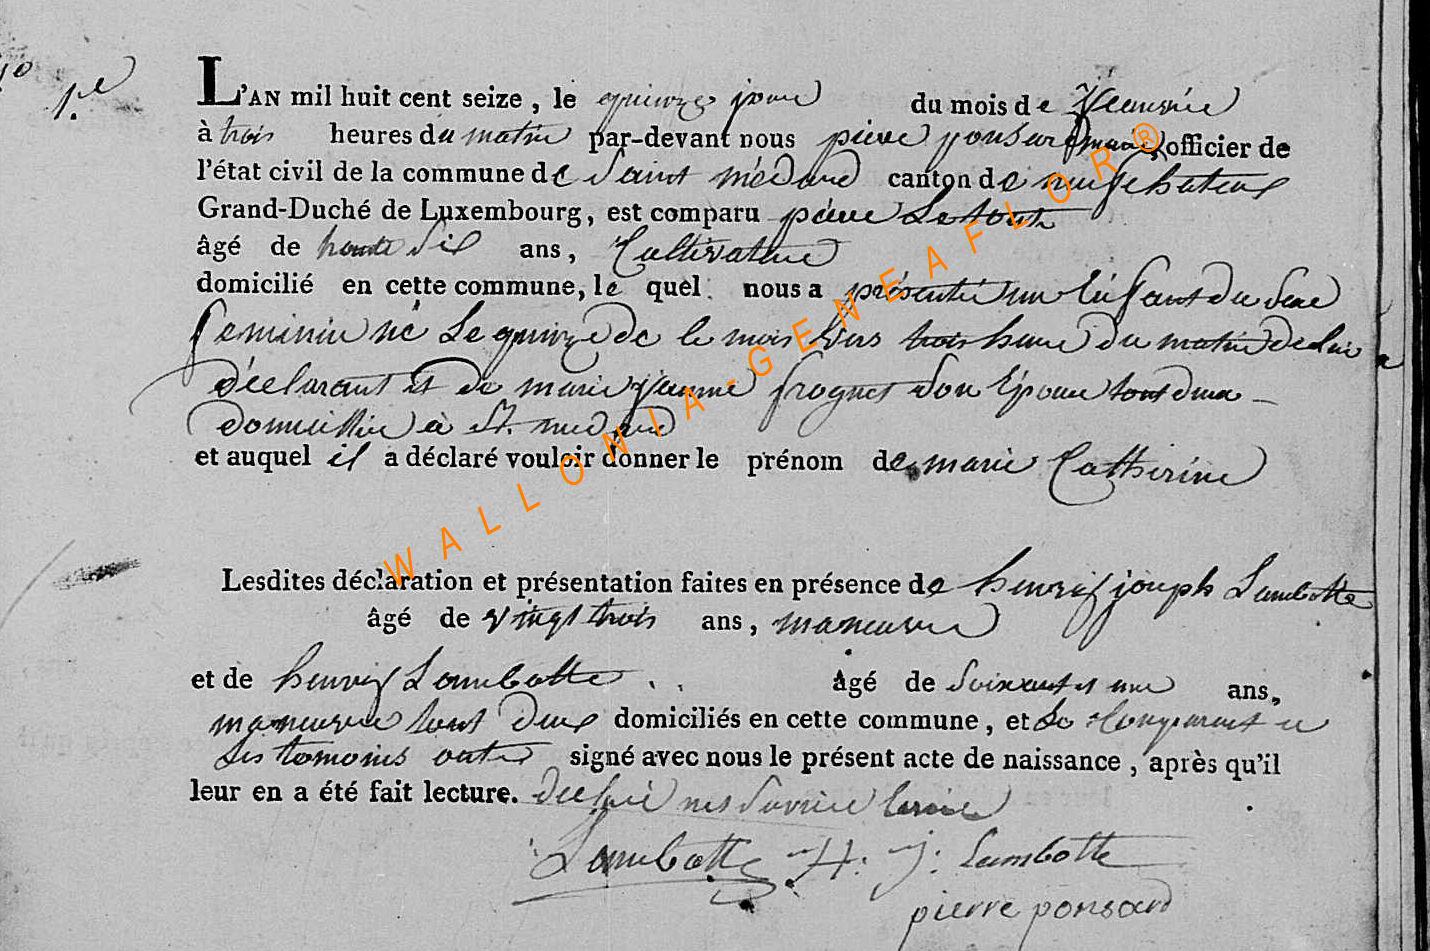 1.e
L'AN mil huit cent seize, le quinze jour du mois de Jeanvier
à trois heures du matin par-devant nous pierre ponsard maire, officier de
l'état civil de la commune de Saint médard canton de neufchateau
Grand-Duché de Luxembourg, est comparu pierre
âgé de trente Six ans, Cultivateur
domicilié en cette commune, le quel nous a présenté un Enfant du Sexe
feminin né Le quinze de ce mois vers trois heure du matin de lui
déclarant et de marie jeanne frognet Son Epouse tout deux
domicillier à St. medard
et auquel il a déclaré vouloir donner le prénom de marie Catherine
Lesdites déclaration et présentation faites en présence de henri joseph Lambotte
âgé de vingt trois ans, maneuvre
et de henry Lambotte âgé de Soixante et une ans,
maneuvre tout deux domiciliés en cette commune, et Le Comparant et
Les temoins ont signé avec nous le présent acte de naissance, après qu'il
leur en a été fait lecture. declaré
Lambotte H. J. Lambotte
pierre ponsard
WALLONIA-GENEAFLOR®